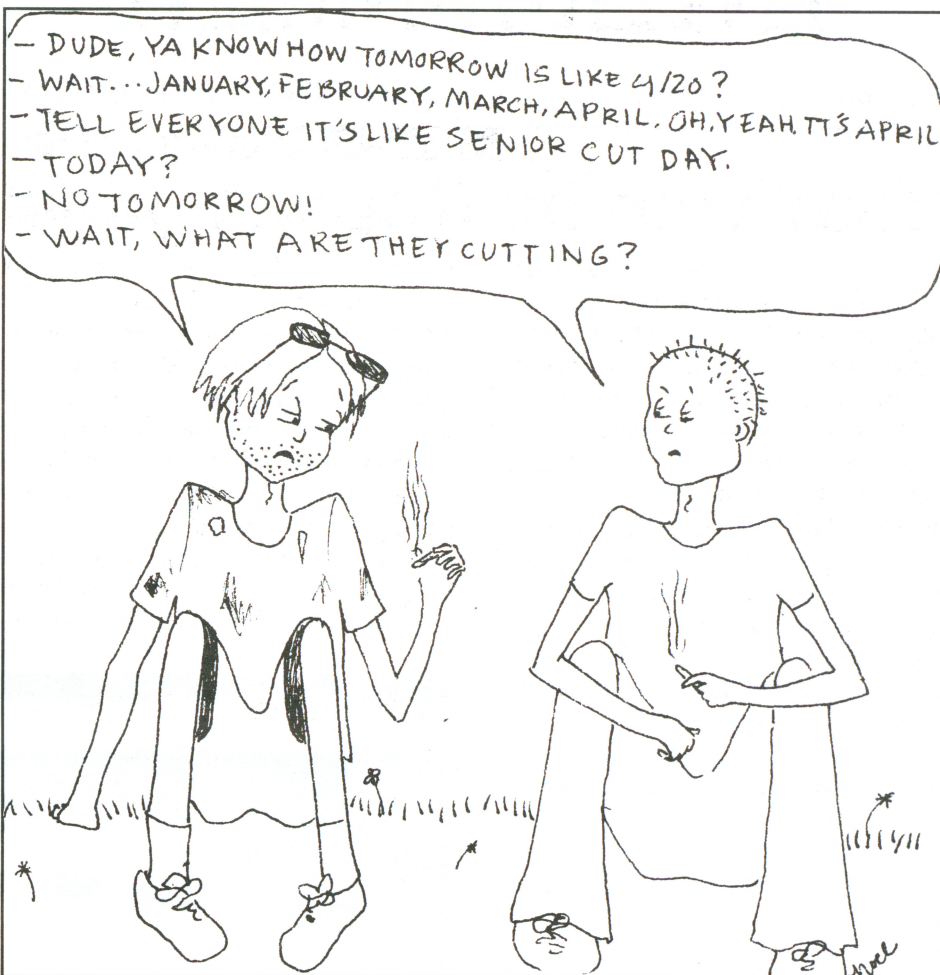 - DUDE, YA KNOW HOW TOMORROW IS LIKE 4/20?
- WAIT... JANUARY, FEBRUARY, MARCH, APRIL. OH, YEAH. IT'S APRIL
- TELL EVERYONE IT'S LIKE SENIOR CUT DAY.
- TODAY?
- NO TOMORROW!
- WAIT, WHAT ARE THEY CUTTING?
Noel